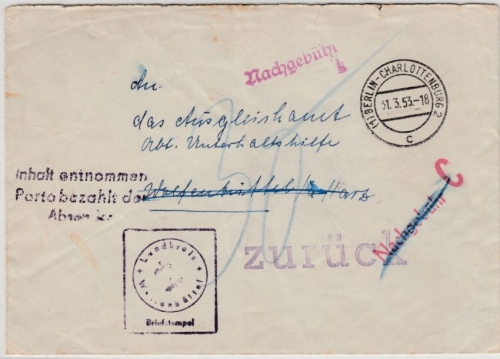 Nachgebühr
(1) BERLIN-CHARLOTTENBURG 2
31.3.53.-18
c
An
das Ausgleichsamt
Abt. Unterhaltshilfe
Wolfenbüttel a/Harz
Inhalt entnommen
Porto bezahlt der
Absender
C
Nachgebühr
zurück
Landkreis
Briefstempel